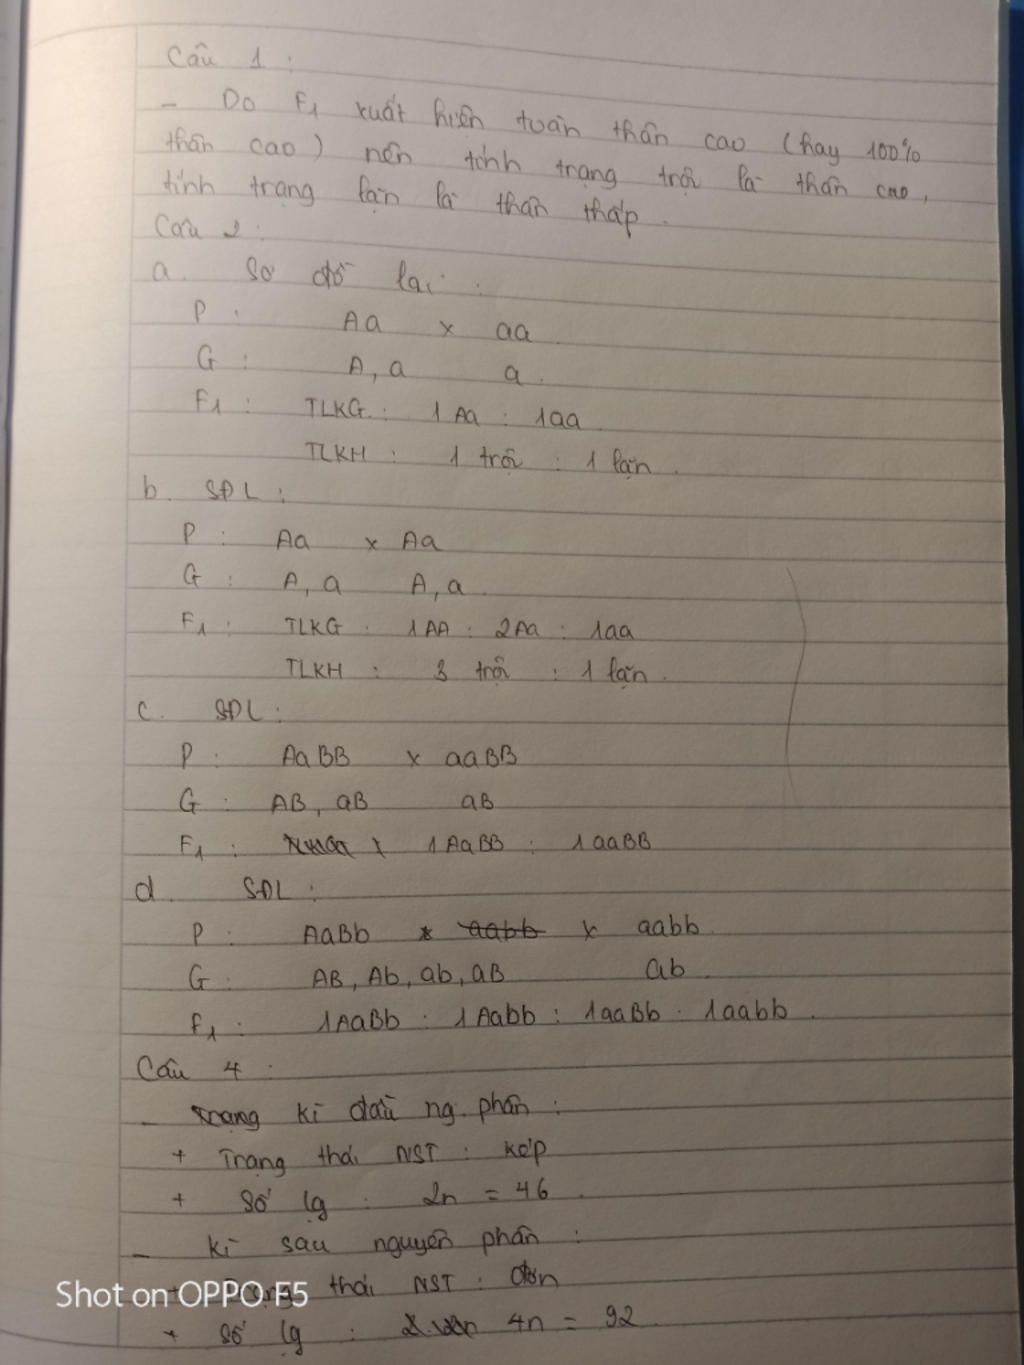 Câu 1 :
- Do F1 xuất hiện toàn thân cao (hay 100%
thân cao) nên tính trạng trội là thân cao,
tính trạng lặn là thân thấp.
Câu 2 :
a. Sơ đồ lai :
P : Aa x aa
G : A, a a.
F1 : TLKG : 1 Aa : 1aa
TLKH : 1 trội : 1 lặn.
b. SĐL :
P : Aa x Aa
G : A, a A, a.
F1 : TLKG : 1AA : 2Aa : 1aa
TLKH : 3 trội : 1 lặn.
c. SĐL :
P : AaBB x aaBB
G : AB, aB aB
F1 : 1AaBB : 1aaBB
d. SĐL :
P : AaBb x aabb x aabb
G : AB, Ab, ab, aB ab.
F1 : 1AaBb : 1Aabb : 1aaBb : 1aabb.
Câu 4 :
- kì đầu ng. phân :
+ Trạng thái NST : kép
+ Số lg : 2n = 46.
- kì sau nguyên phân :
+ thái NST : đơn
+ Số lg : 4n = 92.
Shot on OPPO F5